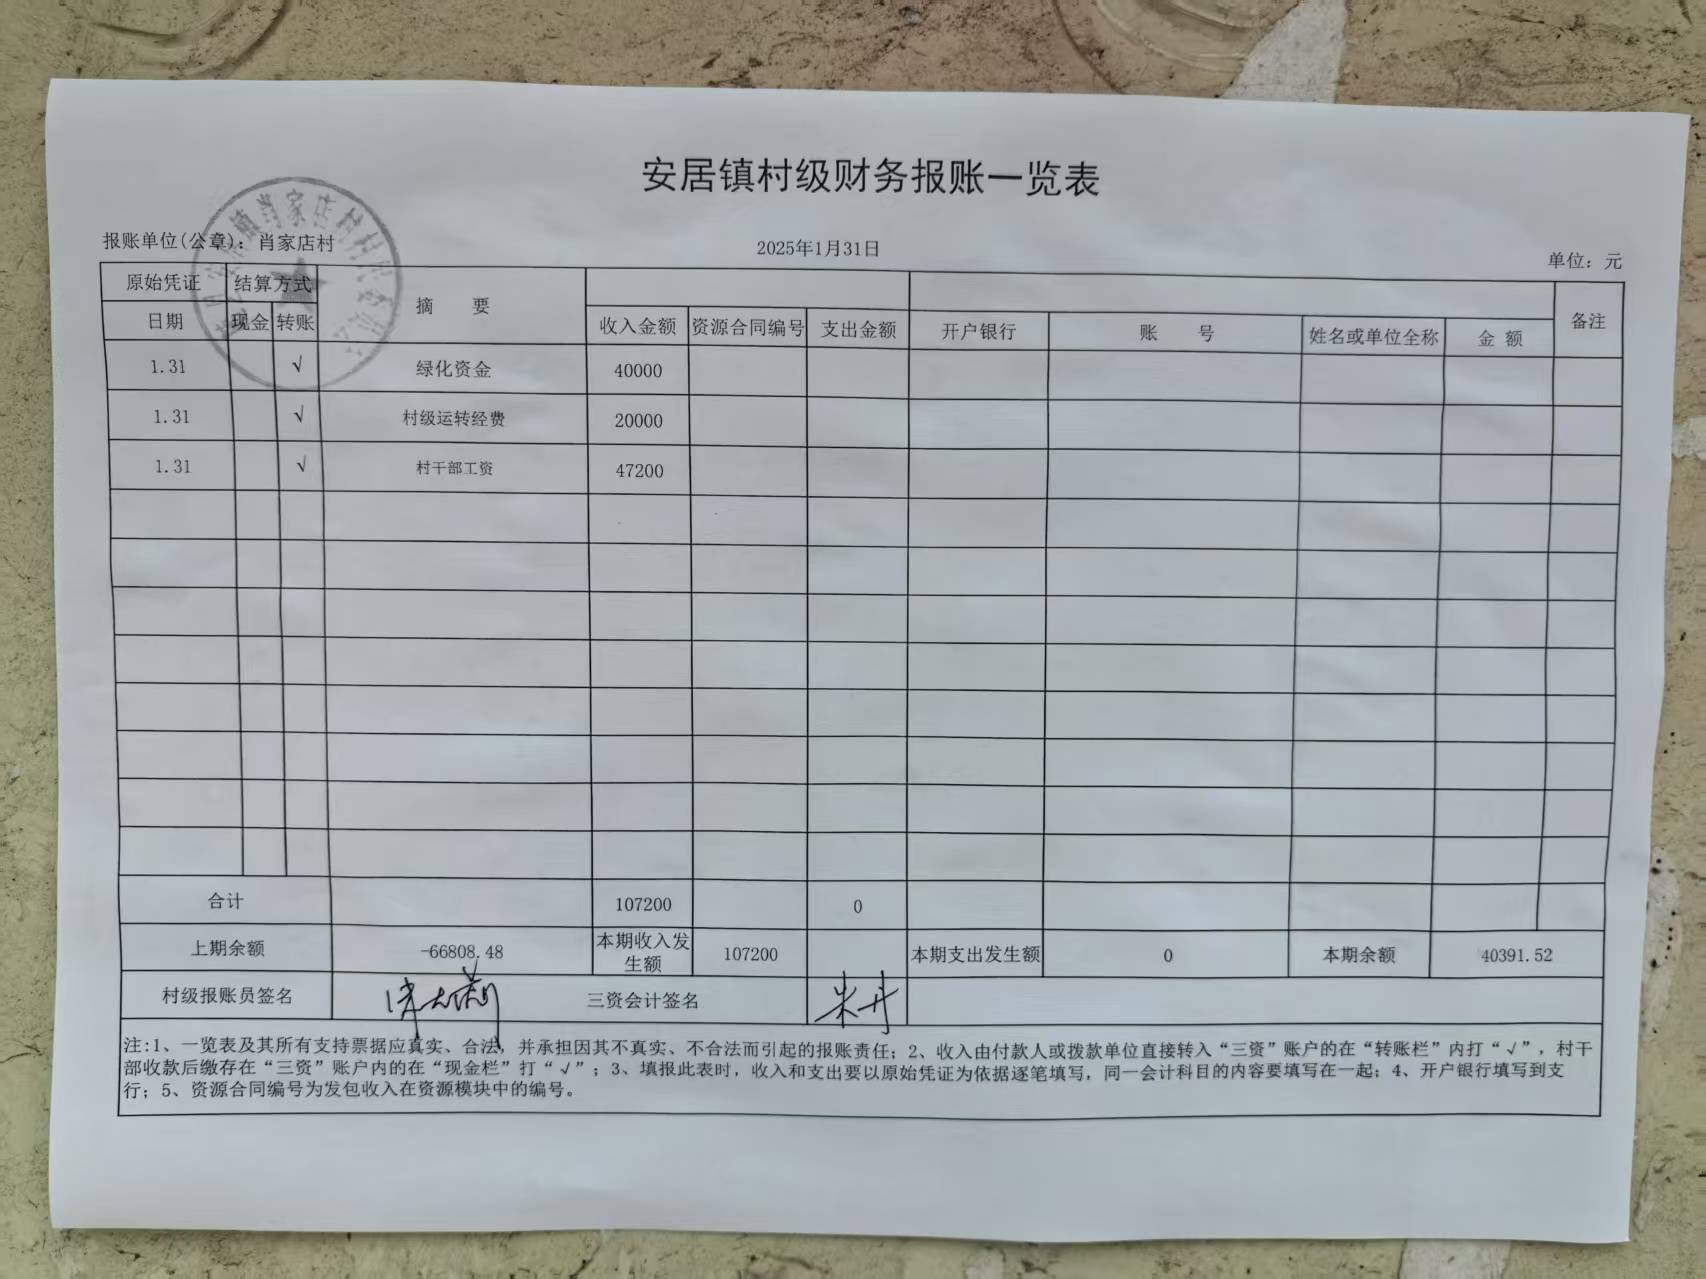 安居镇村级财务报账一览表
报账单位(公章): 肖家店村
2025年1月31日
单位: 元
原始凭证 结算方式 摘 要 备注
日期 现金 转账 收入金额 资源合同编号 支出金额 开户银行 账 号 姓名或单位全称 金 额
1.31 √ 绿化资金 40000
1.31 √ 村级运转经费 20000
1.31 √ 村干部工资 47200
合计 107200 0
上期余额 -66808.48 本期收入发生额 107200 本期支出发生额 0 本期余额 40391.52
村级报账员签名 三资会计签名 朱丹
注:1、一览表及其所有支持票据应真实、合法, 并承担因其不真实、不合法而引起的报账责任; 2、收入由付款人或拨款单位直接转入“三资”账户的在“转账栏”内打“√”, 村干
部收款后缴存在“三资”账户内的在“现金栏”打“√”; 3、填报此表时, 收入和支出要以原始凭证为依据逐笔填写, 同一会计科目的内容要填写在一起; 4、开户银行填写到支
行; 5、资源合同编号为发包收入在资源模块中的编号。